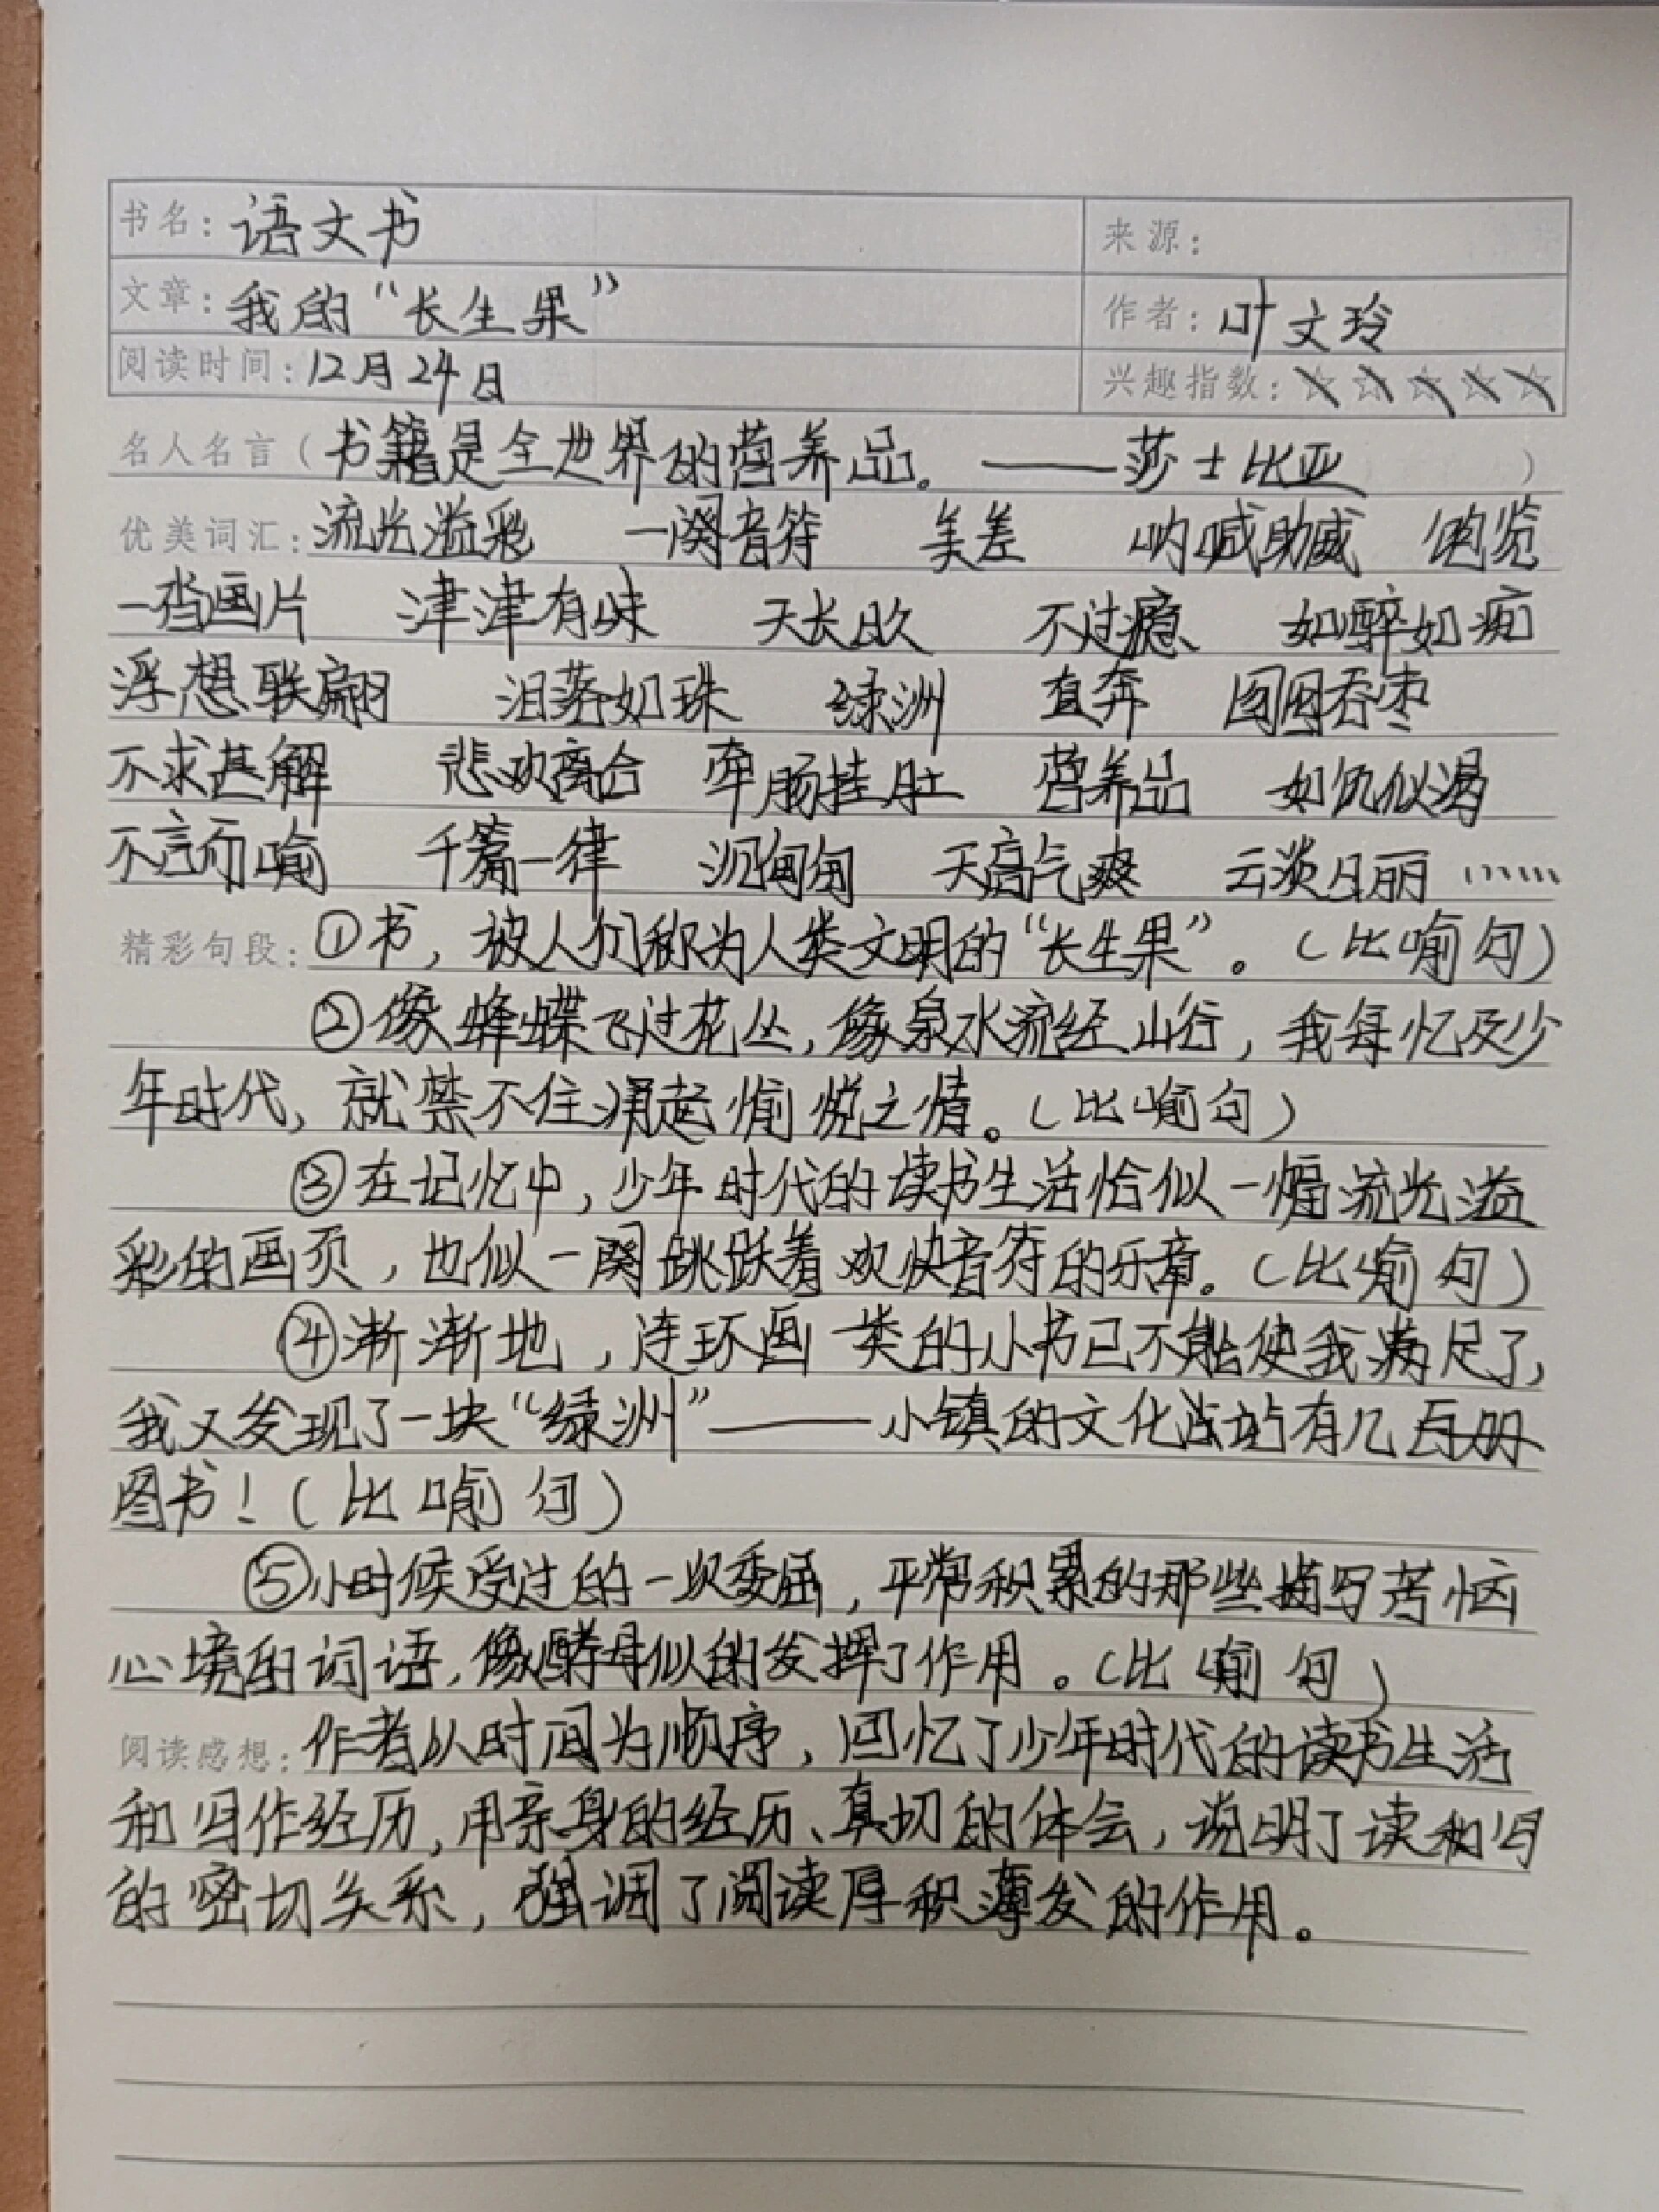 书名: 语文书 来源:
文章: 我的“长生果” 作者: 叶文玲
阅读时间: 12月24日 兴趣指数: ☆☆☆☆☆
名人名言(书籍是全世界的营养品。——莎士比亚)
优美词汇: 流光溢彩 一阕音符 美差 呐喊助威 饱览
一档画片 津津有味 天长日久 不过瘾 如醉如痴
浮想联翩 泪落如珠 绿洲 直奔 囫囵吞枣
不求甚解 悲欢离合 牵肠挂肚 营养品 如饥似渴
不言而喻 千篇一律 沉甸甸 天高气爽 云淡日丽……
精彩句段: ①书,被人们称为人类文明的“长生果”。(比喻句)
②像蜂蝶飞过花丛,像泉水流经山谷,我每忆及少
年时代,就禁不住涌起愉悦之情。(比喻句)
③在记忆中,少年时代的读书生活恰似一幅流光溢
彩的画页,也似一阕跳跃着欢快音符的乐章。(比喻句)
④渐渐地,连环画一类的小书已不能使我满足了,
我又发现了一块“绿洲”——小镇的文化站有几百册
图书!(比喻句)
⑤小时候受过的一次委屈,平常积累的那些描写苦恼
心境的词语,像酵母似的发挥了作用。(比喻句)
阅读感想: 作者以时间为顺序,回忆了少年时代的读书生活
和写作经历,用亲身的经历、真切的体会,说明了读和写
的密切关系,强调了阅读厚积薄发的作用。